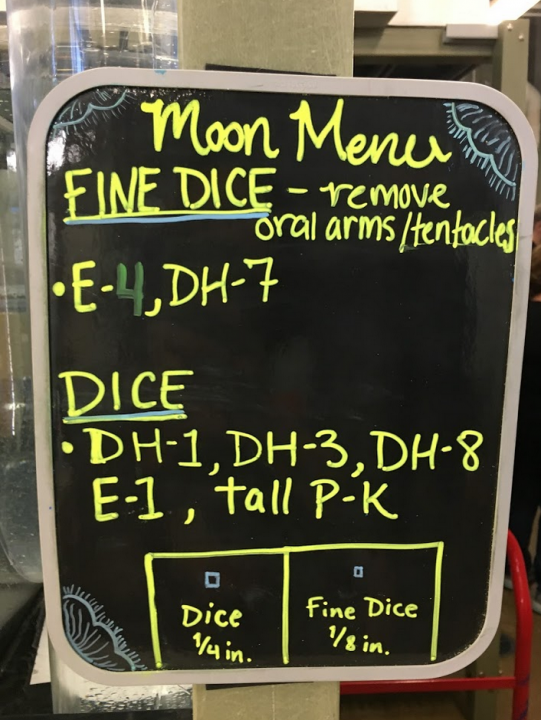 Moon Menu
FINE DICE - remove
oral arms/tentacles
•E-4, DH-7
DICE
•DH-1, DH-3, DH-8
E-1, tall P-K
Dice
1/4 in.
Fine Dice
1/8 in.